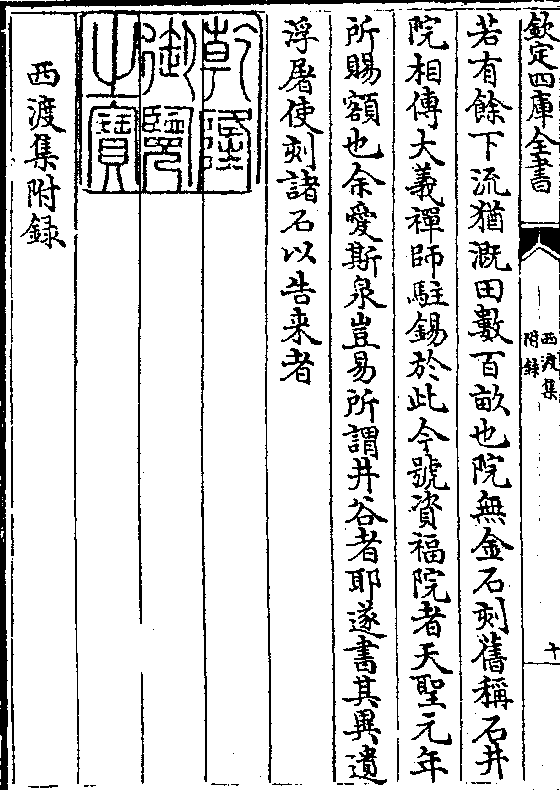 欽定四庫全書
西渡集
附録
十
若有餘下流猶溉田數百畝也院無金石刻舊稱石井
院相傳大義禪師駐錫於此今號資福院者天聖元年
所賜額也余愛斯泉豈易所謂井谷者耶遂書其異遺
浮屠使刻諸石以告来者
乾隆
御覽
之寶
西渡集附録